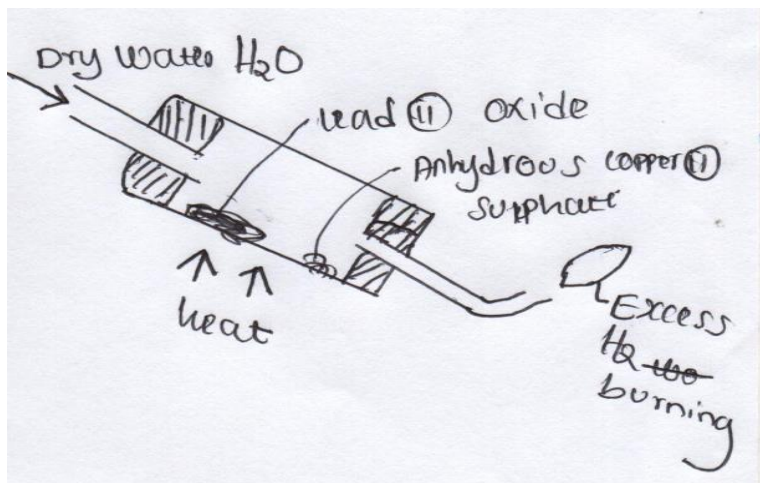 Dry Water H₂O
lead (II) oxide
Anhydrous copper (II)
sulphate
heat
Excess
H₂
burning